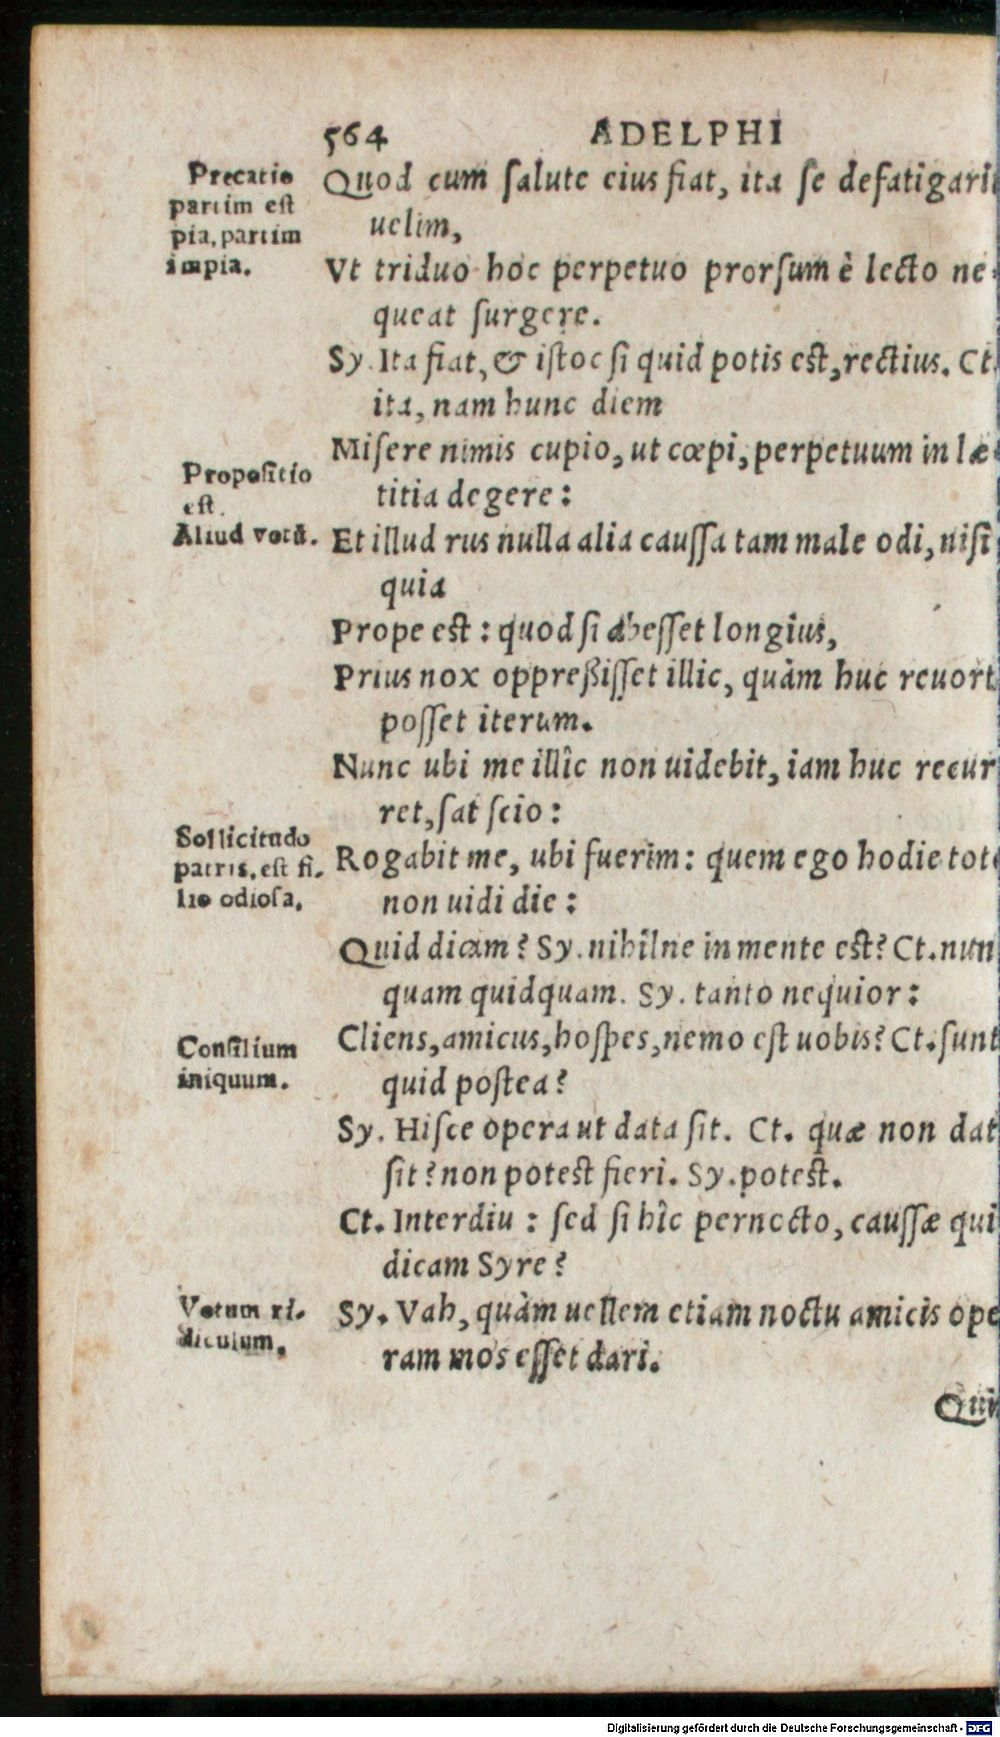 564 ADELPHI
Precatio
partim est
pia, partim
impia.
Quod cum ſalute eius fiat, ita ſe defatigari
uelim,
Vt triduo hoc perpetuo prorſum è lecto ne-
queat ſurgere.
Sy. Ita fiat, & iſtoc ſi quid potis eſt, rectius. Ct.
ita, nam hunc diem
Miſere nimis cupio, ut cœpi, perpetuum in læ-
titia degere:
Propoſitio
eſt.
Aliud votū.
Et illud rus nulla alia cauſſa tam male odi, niſi
quia
Prope eſt: quod ſi abeſſet longius,
Prius nox oppreßiſſet illic, quàm huc reuort
poſſet iterum.
Nunc ubi me illîc non uidebit, iam huc recur
ret, ſat ſcio:
Sollicitudo
patris, eſt fi-
lio odioſa.
Rogabit me, ubi fuerim: quem ego hodie tot
non uidi die:
Quid dicam? Sy. nihîlne in mente eſt? Ct. nun
quam quidquam. Sy. tanto nequior:
Conſilium
iniquum.
Cliens, amicus, hoſpes, nemo eſt uobis? Ct. ſunt
quid poſtea?
Sy. Hiſce opera ut data ſit. Ct. quæ non dat
ſit? non poteſt fieri. Sy. poteſt.
Ct. Interdiu: ſed ſi hîc pernocto, cauſſæ qui
dicam Syre?
Votum ri-
diculum.
Sy. Vah, quàm uellem etiam noctu amicis ope
ram mos eſſet dari.
Qui
Digitalisierung gefördert durch die Deutsche Forschungsgemeinschaft - DFG